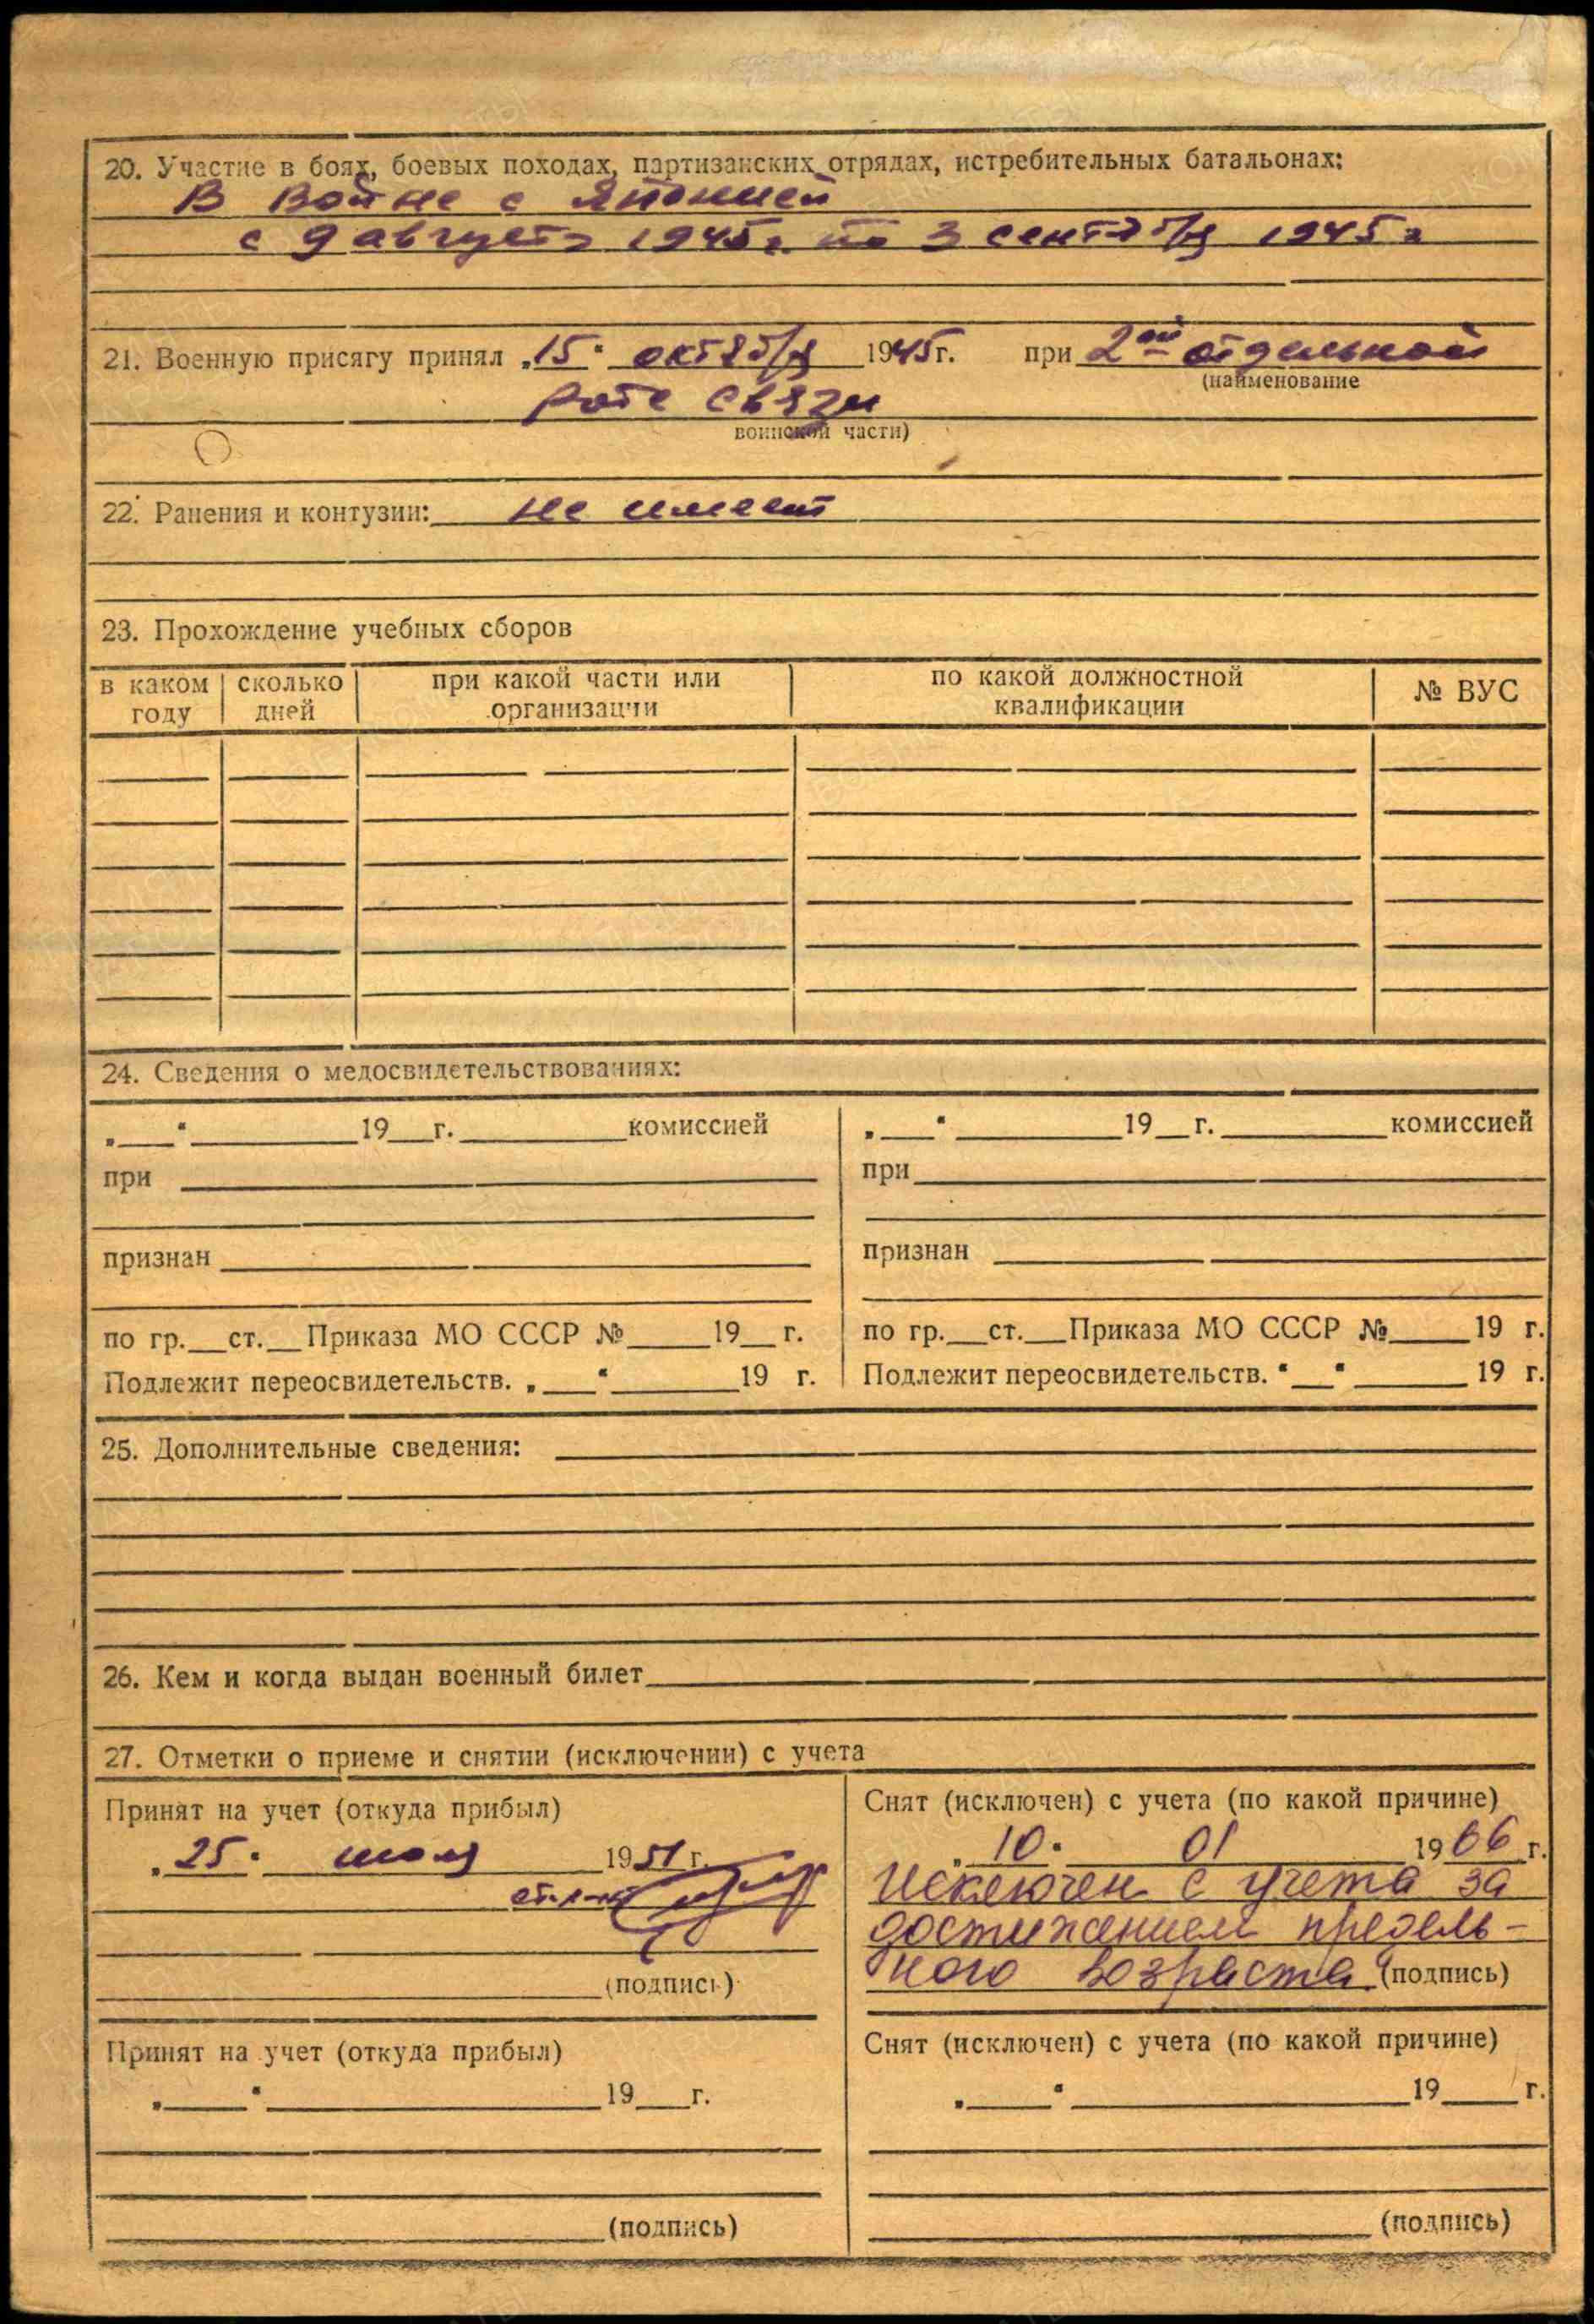 20. Участие в боях, боевых походах, партизанских отрядах, истребительных батальонах:
В войне с Японией
с 9 августа 1945 г. по 3 сентября 1945 г
21. Военную присягу принял „15“ октября 1945г. при 2ой отдельной
(наименование
роте связи
воинской части)
22. Ранения и контузии: не имеет
23. Прохождение учебных сборов
в каком году сколько дней при какой части или организации по какой должностной квалификации № ВУС
24. Сведения о медосвидетельствованиях:
„___“ ______ 19__г. ______ комиссией „___“ ______ 19__г. ______ комиссией
при при
признан признан
по гр.__ст.__Приказа МО СССР №____19__г. по гр.__ст.__Приказа МО СССР №____19 г.
Подлежит переосвидетельств. „___“______19 г. Подлежит переосвидетельств. “__“______19 г.
25. Дополнительные сведения:
26. Кем и когда выдан военный билет
27. Отметки о приеме и снятии (исключении) с учета
Принят на учет (откуда прибыл)
„25“ июля 1951 г.
(подпись)
Снят (исключен) с учета (по какой причине)
„10“ 01 1966 г.
Исключен с учета за
достижением предель-
ного возраста (подпись)
Принят на учет (откуда прибыл)
„____“ ______ 19___г.
(подпись)
Снят (исключен) с учета (по какой причине)
„____“ ______ 19____г.
(подпись)